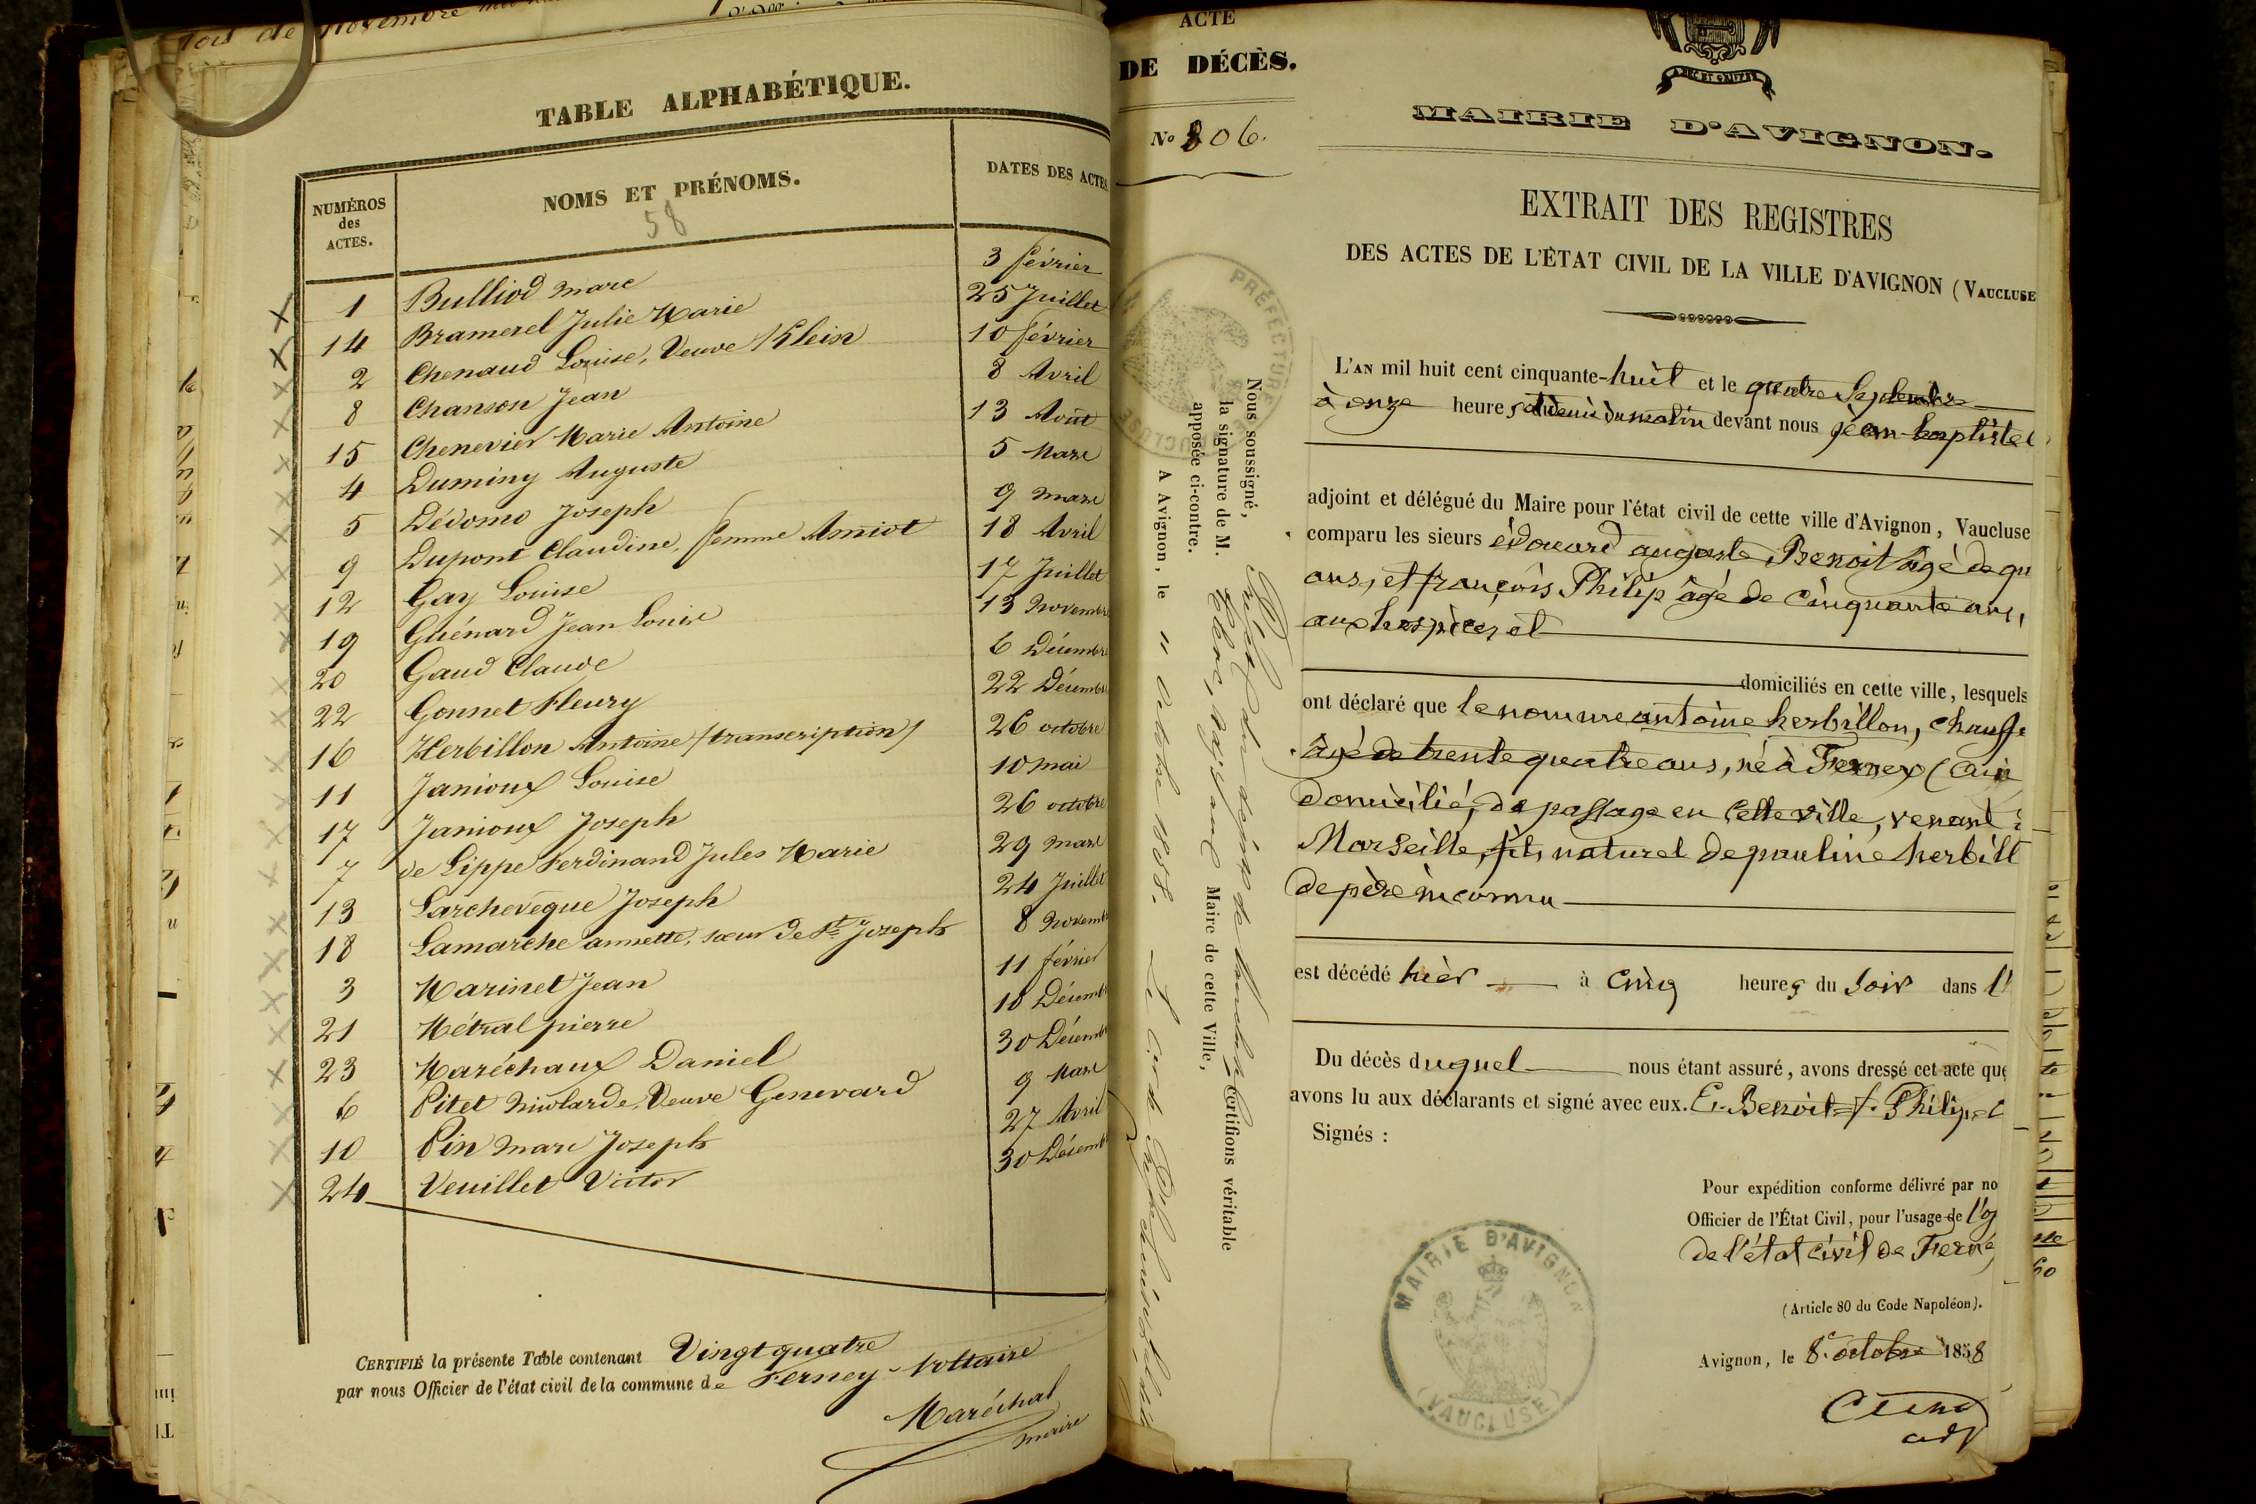 TABLE ALPHABÉTIQUE.
NUMÉROS des ACTES.
NOMS ET PRÉNOMS.
DATES DES ACTES
58
1 Bulliod Marc 3 février
14 Bramerel Julie Marie 25 Juillet
2 Chenaud Louise, Veuve Klein 10 février
8 Chanson Jean 8 Avril
15 Chenevier Marie Antoine 13 Août
4 Duminy Auguste 5 Mars
5 Dédomo Joseph 9 Mars
9 Dupont Claudine, femme Amiot 18 Avril
12 Gay Louise 17 Juillet
19 Guénard Jean Louis 13 Novembre
20 Gaud Claude 6 Décembre
22 Gonnet Fleury 22 Décembre
16 Herbillon Antoine /transcription/ 26 octobre
11 Janioux Louise 10 mai
17 Janioux Joseph 26 octobre
7 de Lippe Ferdinand Jules Marie 29 Mars
13 Larchevêque Joseph 24 Juillet
18 Lamarche annette, sœur de St Joseph 8 Novemb
3 Marinet Jean 11 février
21 Métral pierre 10 Décemb
23 Maréchaux Daniel 30 Décemb
6 Pitet Veuve Genevard 9 Mars
10 Pin Marc Joseph 27 Avril
24 Veuillet Victor 30 Décemb
CERTIFIÉ la présente Table contenant Vingt quatre
par nous Officier de l'état civil de la commune de Ferney-Voltaire
Maréchal
maire
ACTE
DE DÉCÈS.
No 806.
PRÉFECTURE
VAUCLUSE
Nous soussigné,
Maire de cette Ville, Certifions véritable
la signature de M.
apposée ci-contre.
A Avignon, le 11 octobre 1858.
MAIRIE D'AVIGNON.
EXTRAIT DES REGISTRES
DES ACTES DE L'ÉTAT CIVIL DE LA VILLE D'AVIGNON (VAUCLUSE
L'AN mil huit cent cinquante-huit et le quatre Septembre
à onze heures et demie du matin devant nous jean-baptiste
adjoint et délégué du Maire pour l'état civil de cette ville d'Avignon, Vaucluse
comparu les sieurs édouard auguste Benoit âgé de qu
ans, et françois Philip âgé de cinquante ans,
aux hospices et
domiciliés en cette ville, lesquels
ont déclaré que le nommé antoine herbillon, chauff
âgé de trente quatre ans, né à Fernex (ain
domicilié, de passage en cette ville, venant
Marseille, fils naturel de pauline herbill
de père inconnu
est décédé hier à cinq heures du soir dans l'
Du décès duquel nous étant assuré, avons dressé cet acte que
avons lu aux déclarants et signé avec eux. E. Benoit f. Philip
Signés :
Pour expédition conforme délivré par no
Officier de l'État Civil, pour l'usage de l'o
de l'état civil de Ferne
(Article 80 du Code Napoléon).
Avignon, le 8 octobre 1858
adj
MAIRIE D'AVIGNON
(VAUCLUSE)